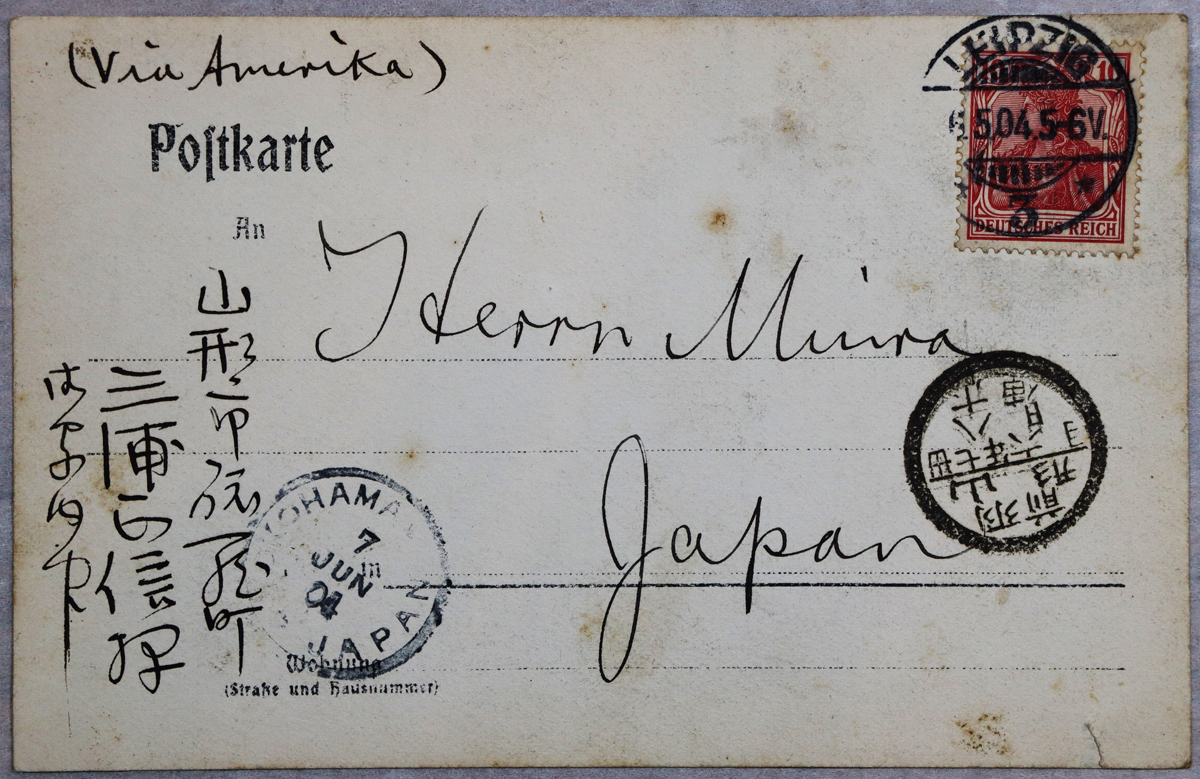 (Via Amerika)
Poſtkarte
An
Herrn Miura
Japan
in
Wohnung
(Straße und Hausnummer)
山形市旅篭町
三浦正信
LEIPZIG
5.04.5-6V.
3
10
DEUTSCHES REICH
YOKOHAMA
7
JUN
04
JAPAN
羽前
山形